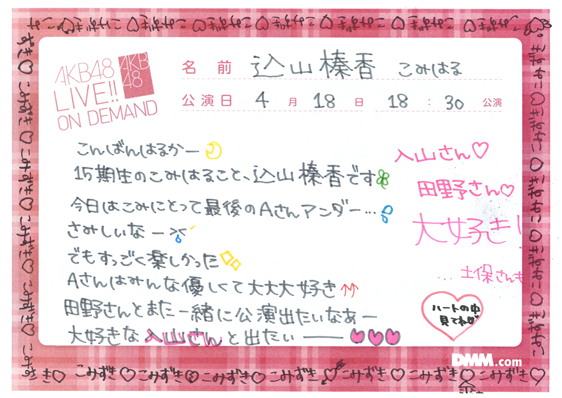 AKB48
LIVE!!
ON DEMAND
AKB
48
名前 込山榛香 こみはる
公演日 4月18日 18:30 公演
こんばんはるかー
15期生のこみはること、込山榛香です
今日はこみにとって最後のAさんアンダー…
さみしいなー
でもすっごく楽しかった
Aさんはみんな優しくて大大大好き
田野さんとまた一緒に公演出たいなあー
大好きな入山さんと出たい――
入山さん♡
田野さん♡
大好き!
…土保さんも
ハートの中
見てね
DMM.com
こみずき♡ こみずき♡ こみずき♡ こみずき♡ こみずき♡ こみずき♡